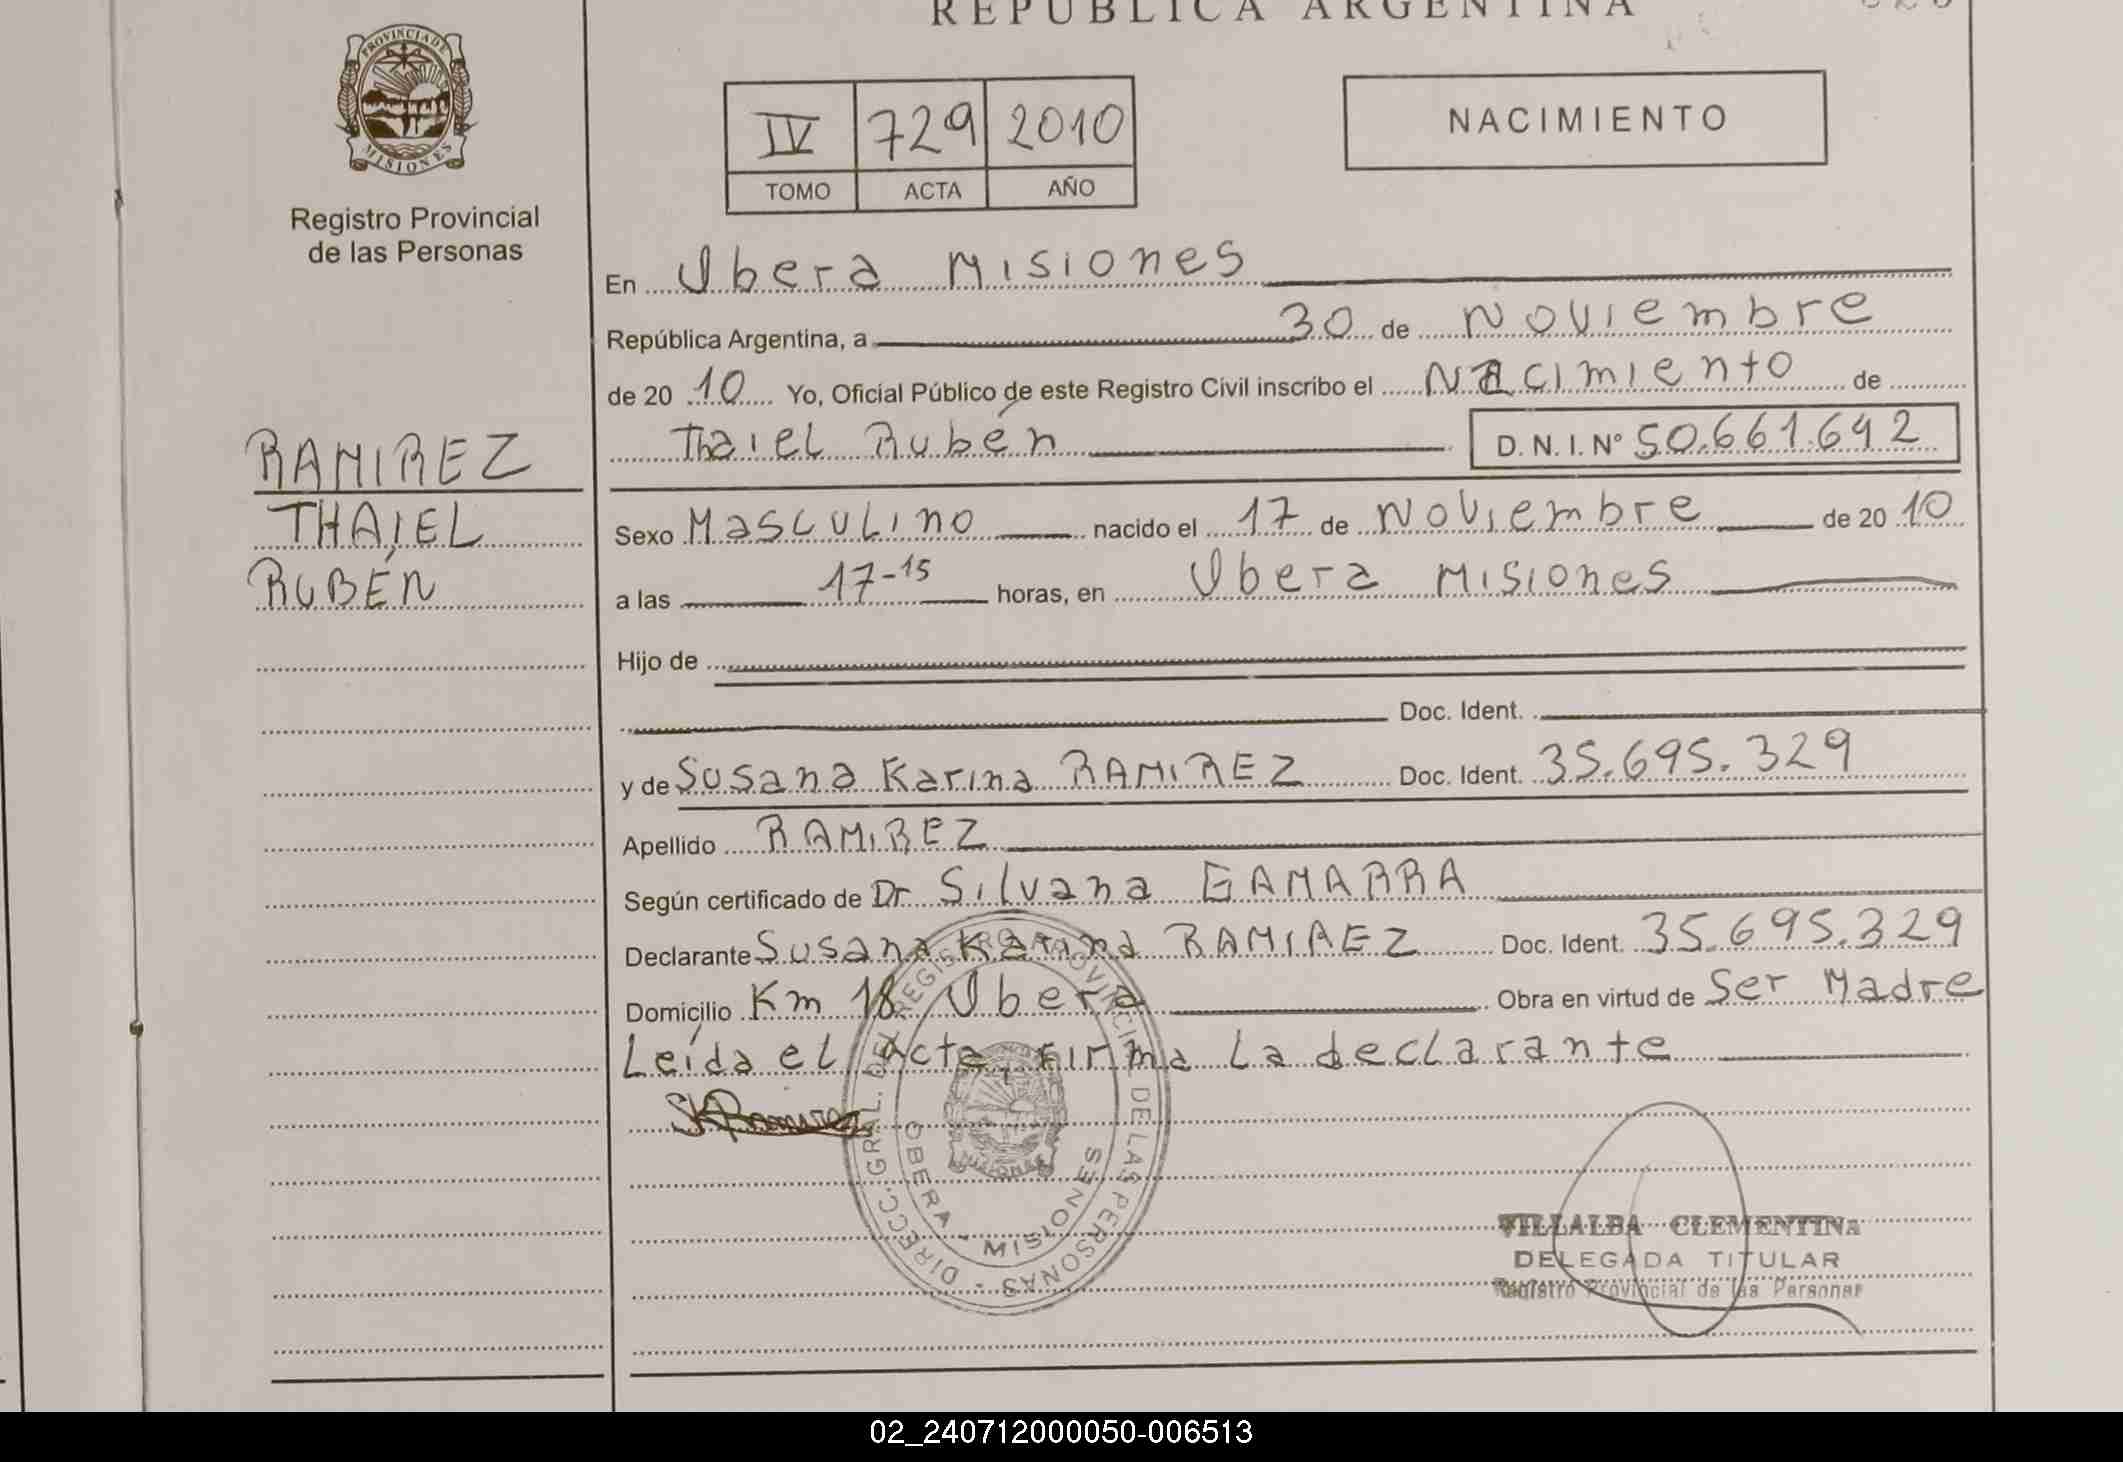 REPUBLICA ARGENTINA
PROVINCIA DE
MISIONES
Registro Provincial
de las Personas
IV 729 2010
TOMO ACTA AÑO
NACIMIENTO
En Obera Misiones
República Argentina, a 30 de Noviembre
de 20 10 Yo, Oficial Público de este Registro Civil inscribo el Nacimiento de
Thaiel Rubén D. N. I. Nº 50.661.642
RAMIREZ
THAIEL
RUBÉN
Sexo Masculino nacido el 17 de Noviembre de 20 10
a las 17-15 horas, en Obera Misiones
Hijo de
Doc. Ident.
y de Susana Karina RAMIREZ Doc. Ident. 35.695.329
Apellido RAMIREZ
Según certificado de Dr Silvana GAMARRA
Declarante Susana Karina RAMIREZ Doc. Ident. 35.695.329
Domicilio Km 18 Obera Obra en virtud de Ser Madre
Leída el Acta, firma La declarante
SKRamirez
DIRECC. GRAL. DEL REGISTRO PROVINCIAL DE LAS PERSONAS
OBERA - MISIONES
VILLALBA CLEMENTINA
DELEGADA TITULAR
Registro Provincial de las Personas
02_240712000050-006513